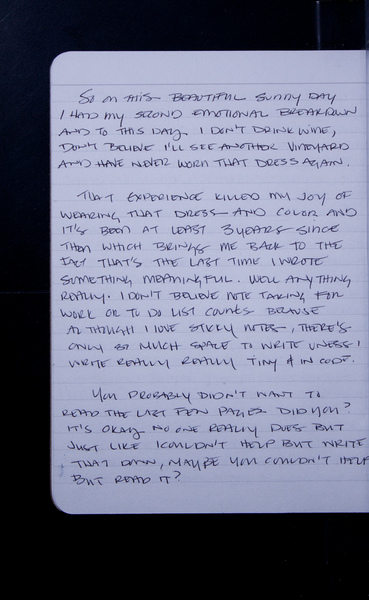 So on this beautiful sunny day
I had my second emotional breakdown
and to this day, I don't drink wine,
don't believe I'll see another vineyard
and have never worn that dress again.
That experience killed my joy of
wearing that dress and color and
it's been at least 3 years since
then which brings me back to the
fact that's the last time I wrote
something meaningful. Well anything
really. I don't believe note taking for
work or to do list counts because
although I love sticky notes, there's
only so much space to write unless I
write really really tiny & in code.
You probably didn't want to
read the last few pages did you?
It's okay no one really does but
just like I couldn't help but write
that down, maybe you couldn't help
but read it?